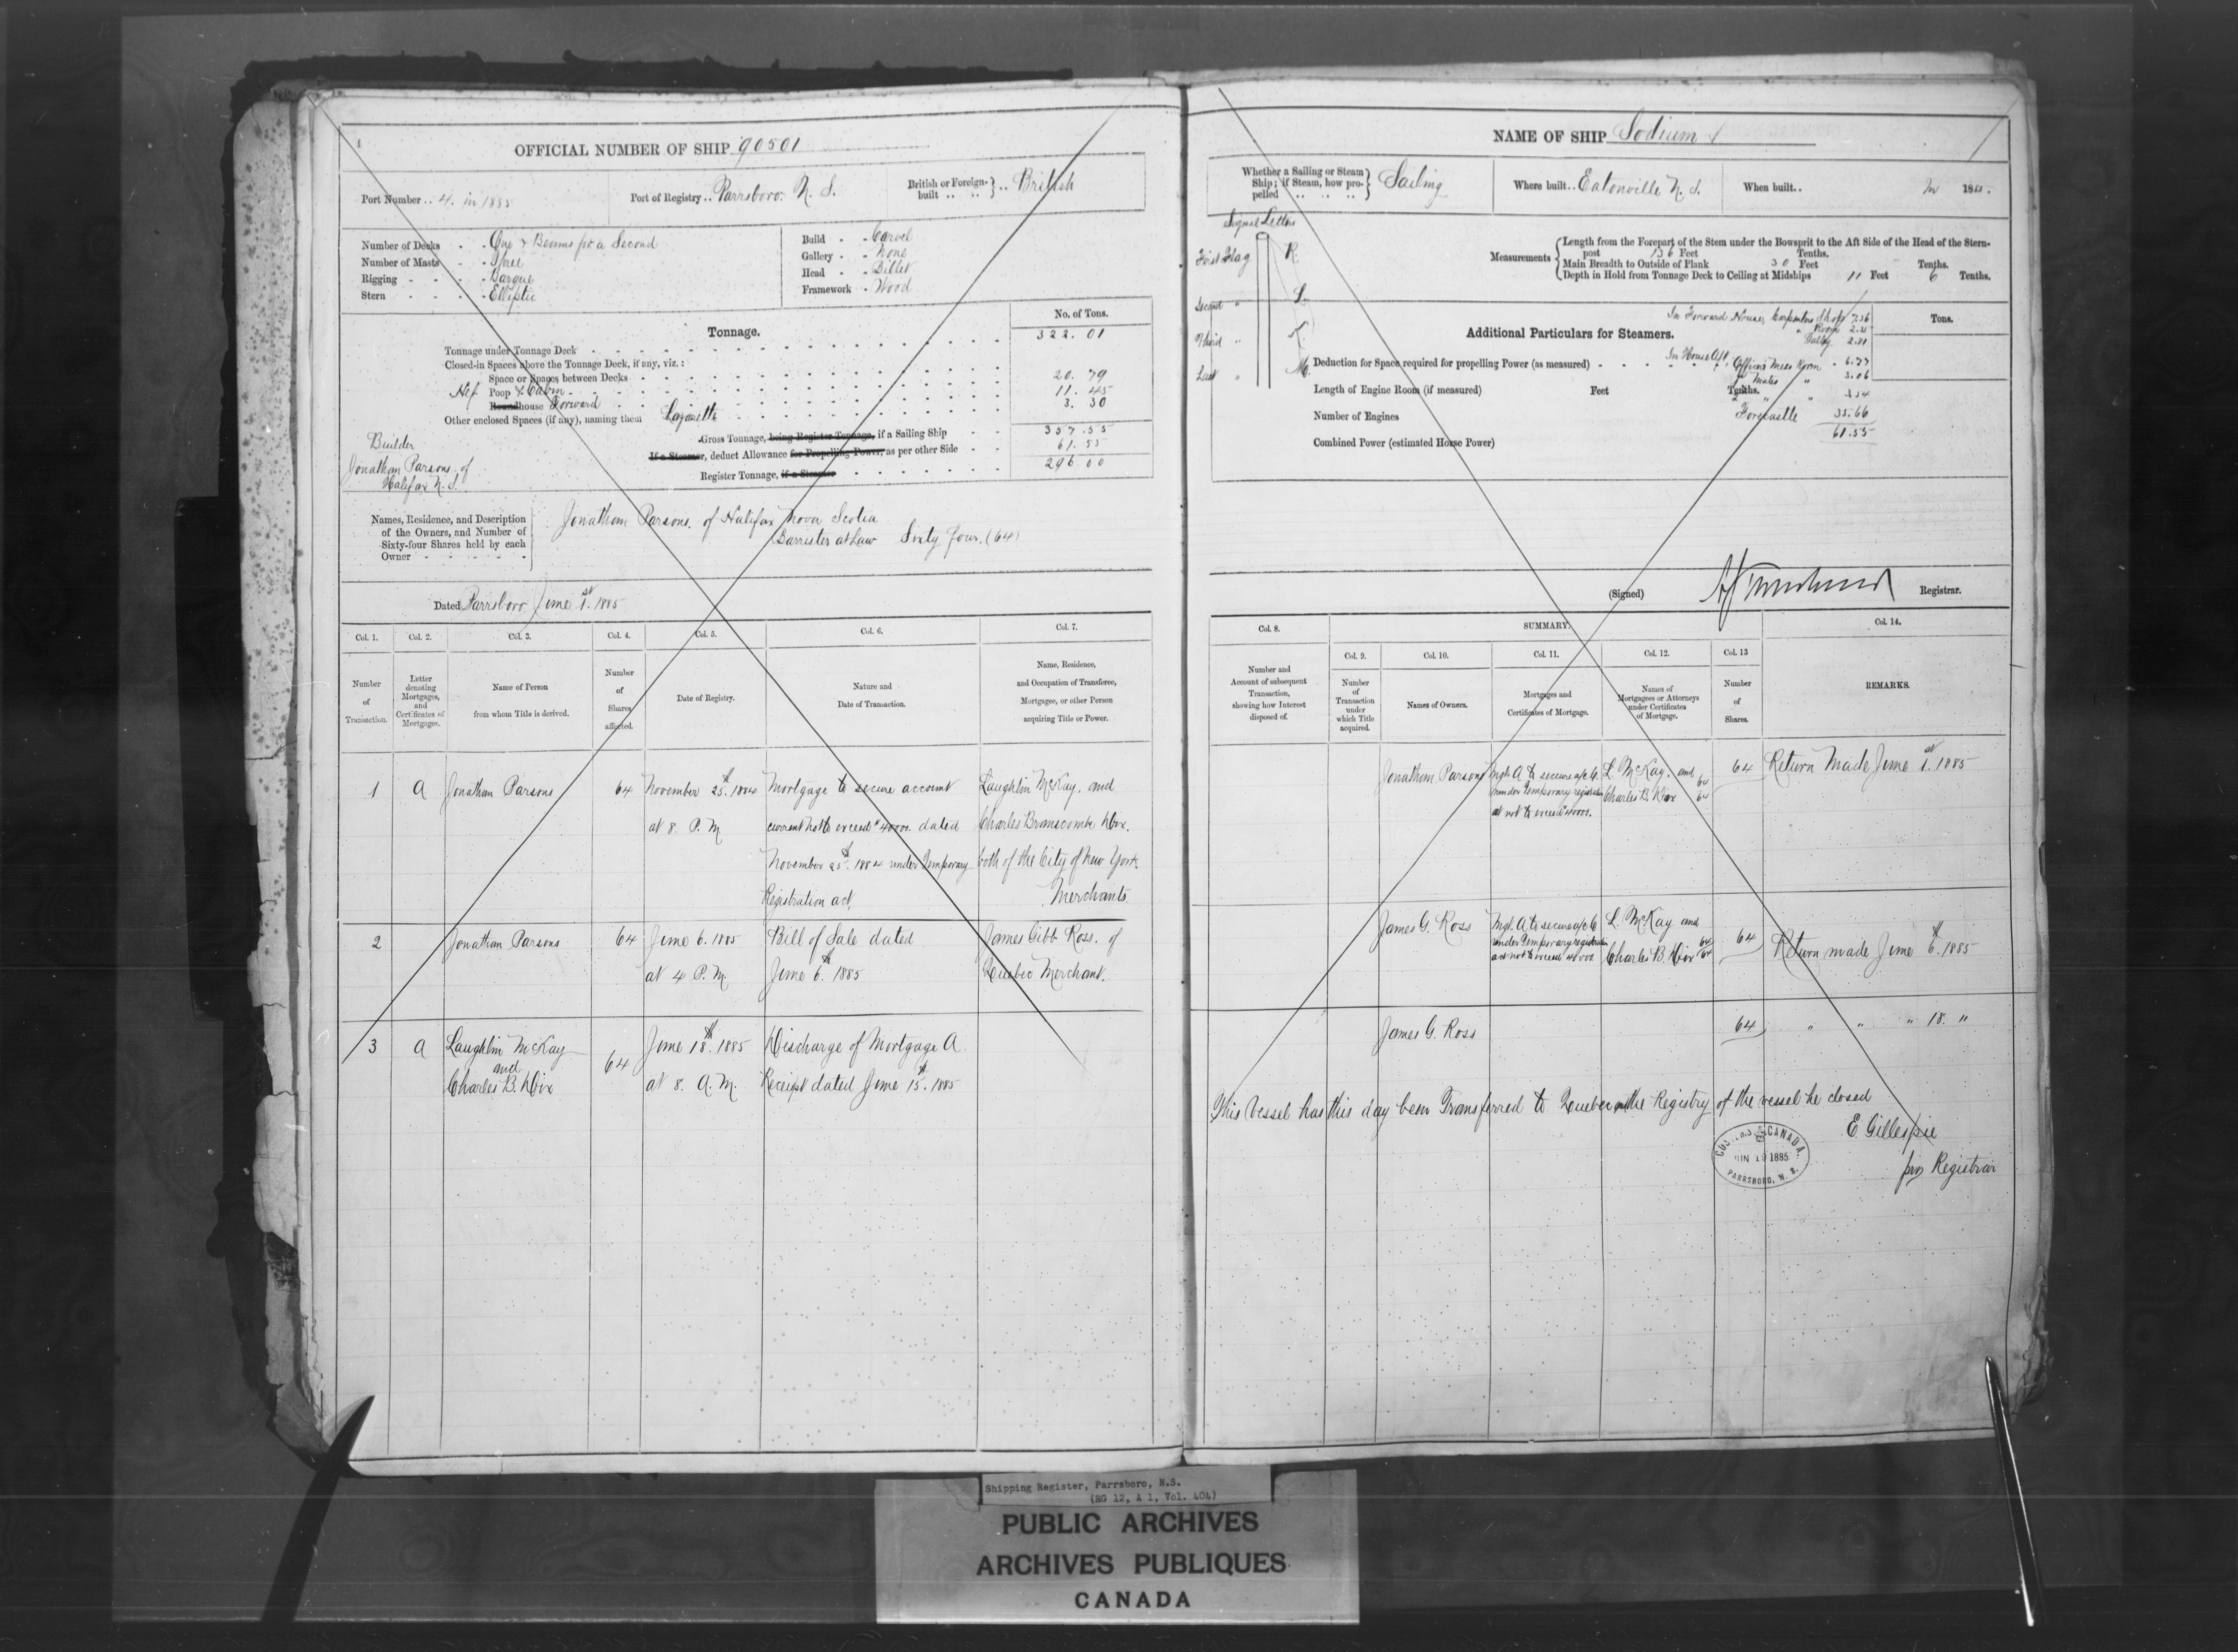 OFFICIAL NUMBER OF SHIP 90501
Port Number .. 4. in 1885
Port of Registry .. Parrsboro. N. S.
British or Foreign-built .. British
Number of Decks - - One & Beams for a Second
Number of Masts - - Three
Rigging - - - - Barque
Stern - - - - Elliptic
Build - - Carvel
Gallery - - None
Head - - Billet
Framework - Wood
Tonnage.
No. of Tons.
Tonnage under Tonnage Deck 322. 01
Closed-in Spaces above the Tonnage Deck, if any, viz.:
Space or Spaces between Decks
Poop & Cabin 20. 79
Roundhouse Forward 11. 45
Other enclosed Spaces (if any), naming them Lazarette 3. 30
Gross Tonnage, being Register Tonnage, if a Sailing Ship 357.55
If a Steamer, deduct Allowance for Propelling Power, as per other Side 61.55
Register Tonnage, if a Steamer 296.00
Builder
Jonathan Parsons of
Halifax N. S.
Names, Residence, and Description
of the Owners, and Number of
Sixty-four Shares held by each
Owner
Jonathan Parsons. of Halifax Nova Scotia
Barrister at Law Sixty four. (64)
Dated Parrsboro June 1st. 1885
Col. 1. Col. 2. Col. 3. Col. 4. Col. 5. Col. 6. Col. 7.
Number
of
Transaction.
Letter
denoting
Mortgages,
and
Certificates of
Mortgages.
Name of Person
from whom Title is derived.
Number
of
Shares
affected.
Date of Registry.
Nature and
Date of Transaction.
Name, Residence,
and Occupation of Transferee,
Mortgagee, or other Person
acquiring Title or Power.
1 A Jonathan Parsons 64
November 25th. 1884
at 8 P. M
Mortgage to secure account
current not to exceed $40000. dated
November 25th. 1884 under Temporary
Registration act,
Laughlin McKay. and
Charles Branscombe Dix.
both of the City of New York.
Merchants.
2 Jonathan Parsons 64
June 6. 1885
at 4 P. M.
Bill of Sale dated
June 6th. 1885
James Gibb Ross. of
Quebec Merchant.
3 A Laughlin McKay
and
Charles B. Dix
64
June 18th. 1885
at 8. A. M.
Discharge of Mortgage A
Receipt dated June 15th. 1885
NAME OF SHIP Sodium
Whether a Sailing or Steam
Ship; if Steam, how pro-
pelled
Sailing
Where built.. Eatonville N. S.
When built.. In 188
Signal Letters
First Flag R.
Second " S.
Third " K.
Last " M.
Measurements
Length from the Forepart of the Stem under the Bowsprit to the Aft Side of the Head of the Stern-
post 136 Feet Tenths.
Main Breadth to Outside of Plank 30 Feet Tenths.
Depth in Hold from Tonnage Deck to Ceiling at Midships 11 Feet 6 Tenths.
Additional Particulars for Steamers.
Tons.
In Forward House, Carpenters Shop 7.56
" Room
Galley 2.81
Deduction for Space required for propelling Power (as measured)
In House Aft, Officers Mess Room 6.77
Mates " 3.06
Length of Engine Room (if measured) Feet Tenths.
" " 3.54
Number of Engines
Forecastle 35.66
61.55
Combined Power (estimated Horse Power)
(Signed) Registrar.
Col. 8.
SUMMARY.
Col. 14.
Number and
Account of subsequent
Transaction,
showing how Interest
disposed of.
Col. 9. Col. 10. Col. 11. Col. 12. Col. 13
Number
of
Transaction
under
which Title
acquired.
Names of Owners.
Mortgages and
Certificates of Mortgage.
Names of
Mortgagees or Attorneys
under Certificates
of Mortgage.
Number
of
Shares.
REMARKS.
Jonathan Parsons
Mtge A to secure a/c C.
under Temporary registration
act not to exceed $40000.
L. McKay. and 64
Charles B. Dix 64
64
Return Made June 1st. 1885
James G. Ross
Mtge. A to secure a/c C
under Temporary registration
act not to exceed 40000
L. McKay and
Charles B. Dix 64
64
64
Return made June 6th. 1885
James G. Ross 64 " " " 18. "
This Vessel has this day been Transferred to Quebec and the Registry of the vessel he closed
E. Gillespie
pro Registrar
CUSTOMS CANADA
JUN 19 1885
PARRSBORO, N. S.
Shipping Register, Parrsboro, N.S.
(RG 12, A 1, Vol. 404)
PUBLIC ARCHIVES
ARCHIVES PUBLIQUES
CANADA